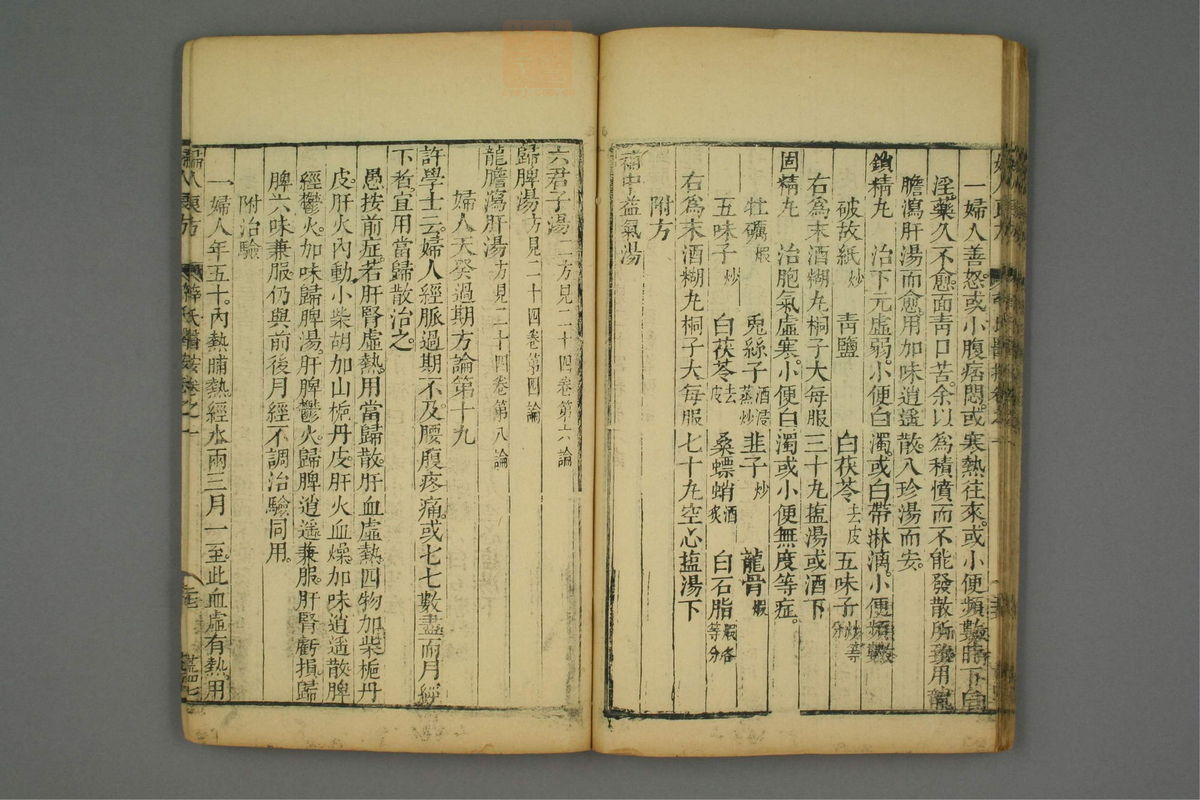 一婦人善怒。或小腹痞悶。或寒熱往來。或小便頻數。時下白
淫。藥久不愈。面青口苦。余以為積憤而不能發散所致。用龍
膽瀉肝湯而愈。用加味逍遙散。八珍湯而安。
鎖精丸　治下元虛弱。小便白濁。或白帶淋漓。小便頻數
破故紙炒　青鹽　白茯苓去皮　五味子炒等分
右為末酒糊丸桐子大每服三十丸盐湯或酒下
固精丸　治胞氣虛寒。小便白濁或小便無度等症。
牡礪煆　兎絲子酒浸蒸炒　韭子炒　龍骨煆
五味子炒　白茯苓去皮　桑螵蛸酒炙　白石脂煆各等分
右為末酒糊丸桐子大每服七十丸空心盐湯下
附方
補中益氣湯
六君子湯二方見二十四卷第六論
歸脾湯方見二十四卷第四論
龍膽瀉肝湯方見二十四卷第八論
婦人天癸過期方論第十九
許學士云。婦人經脈過期不及。腰腹疼痛。或七七數盡而月經
下者。宜用當歸散治之。
愚按前症。若肝腎虛熱。用當歸散。肝血虛熱。四物加柴梔丹
皮。肝火內動。小柴胡加山梔丹皮。肝火血燥。加味逍遥散。脾
經鬱火。加味歸脾湯。肝脾鬱火。歸脾逍遥兼服。肝腎虧損。歸
脾六味兼服。仍與前後月經不調治驗同用。
附治驗
一婦人年五十。內熱晡熱。經水兩三月一至。此血虛有熱。用
婦人良方
薛氏醫按卷之一